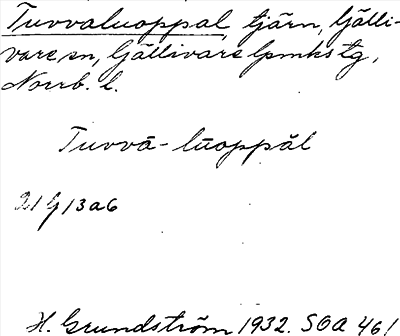 Tuvvaluoppal, tjärn, Gälli-
vare sn, Gällivare lpmkstg,
Norrb. l.
Tuvvā-lūoppăl
21 G 13 a 6
H. Grundström 1932. SOA 461